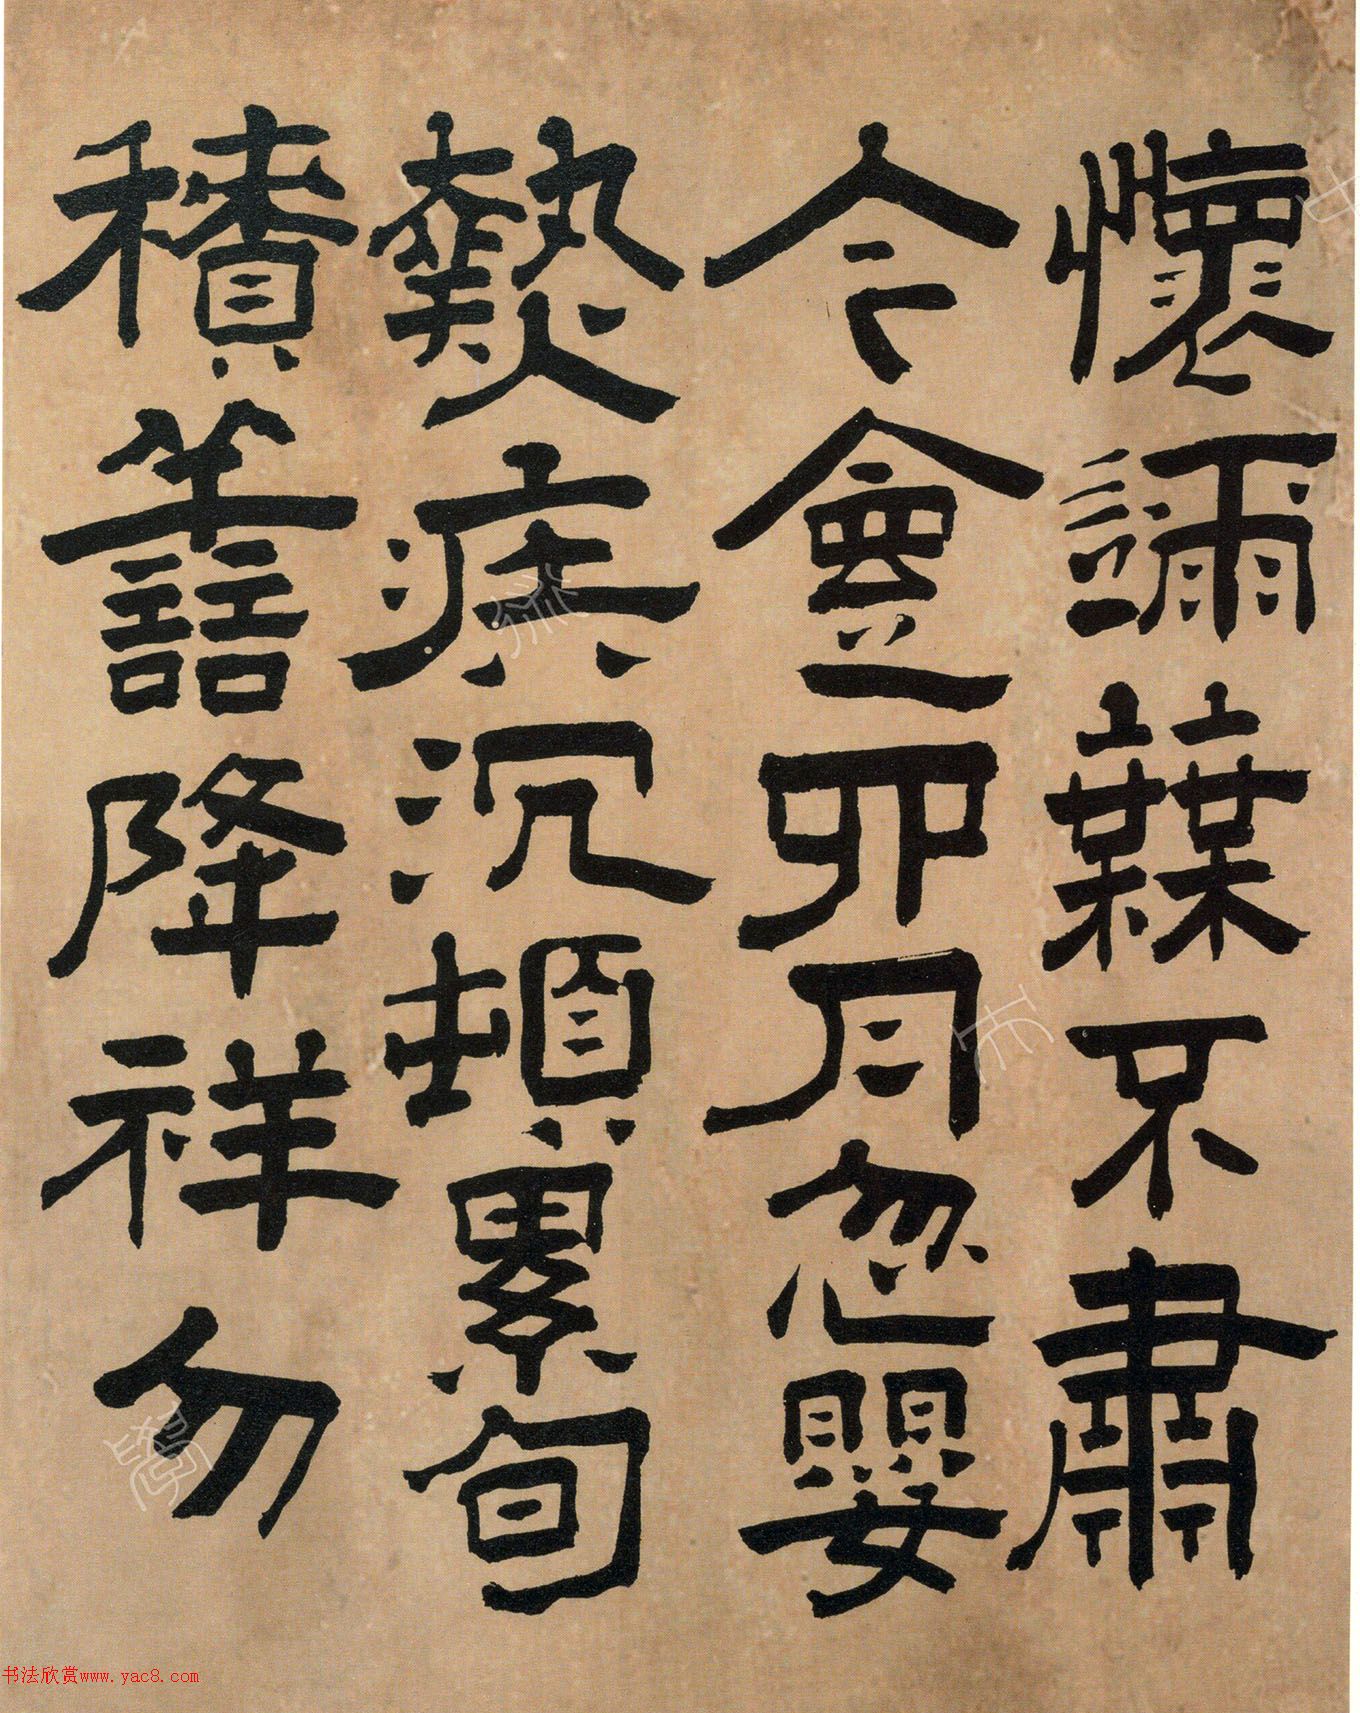 懷不肅
今卯月忽嬰
熱疾沉頓累旬
積善降祥勿
书法欣赏www.yac8.com